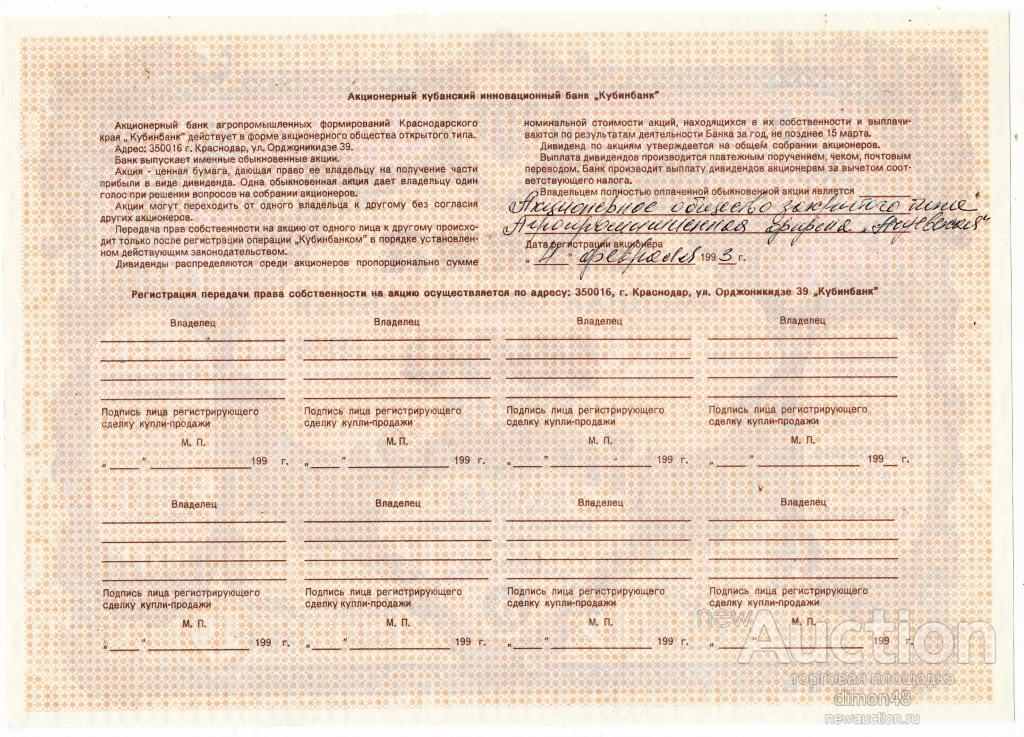 Акционерный кубанский инновационный банк „Кубинбанк"
Акционерный банк агропромышленных формирований Краснодарского
края „ Кубинбанк" действует в форме акционерного общества открытого типа.
Адрес: 350016 г. Краснодар, ул. Орджоникидзе 39.
Банк выпускает именные обыкновенные акции.
Акция - ценная бумага, дающая право ее владельцу на получение части
прибыли в виде дивиденда. Одна обыкновенная акция дает владельцу один
голос при решении вопросов на собрании акционеров.
Акции могут переходить от одного владельца к другому без согласия
других акционеров.
Передача прав собственности на акцию от одного лица к другому происхо-
дит только после регистрации операции „Кубинбанком" в порядке установлен-
ном действующим законодательством.
Дивиденды распределяются среди акционеров пропорционально сумме
номинальной стоимости акций, находящихся в их собственности и выплачи-
ваются по результатам деятельности Банка за год, не позднее 15 марта.
Дивиденд по акциям утверждается на общем собрании акционеров.
Выплата дивидендов производится платежным поручением, чеком, почтовым
переводом. Банк производит выплату дивидендов акционерам за вычетом соот-
ветствующего налога.
Владельцем полностью оплаченной обыкновенной акции является
Акционерное общество закрытого типа
Агропромышленная фирма
Дата регистрации акционера
„ " февраля 1993 г.
Регистрация передачи права собственности на акцию осуществляется по адресу: 350016, г. Краснодар, ул. Орджоникидзе 39 „Кубинбанк"
Владелец Владелец Владелец Владелец
Подпись лица регистрирующего Подпись лица регистрирующего Подпись лица регистрирующего Подпись лица регистрирующего
сделку купли-продажи сделку купли-продажи сделку купли-продажи сделку купли-продажи
М. П. М. П. М. П. М. П.
„ " 199 г. „ " 199 г. „ " 199 г. „ " 199 г.
Владелец Владелец Владелец Владелец
Подпись лица регистрирующего Подпись лица регистрирующего Подпись лица регистрирующего Подпись лица регистрирующего
сделку купли-продажи сделку купли-продажи сделку купли-продажи сделку купли-продажи
М. П. М. П. М. П. М. П.
„ " 199 г. „ " 199 г. „ " 199 г. „ " 199 г.
newAuction
торговая площадка
dimon48
newauction.ru